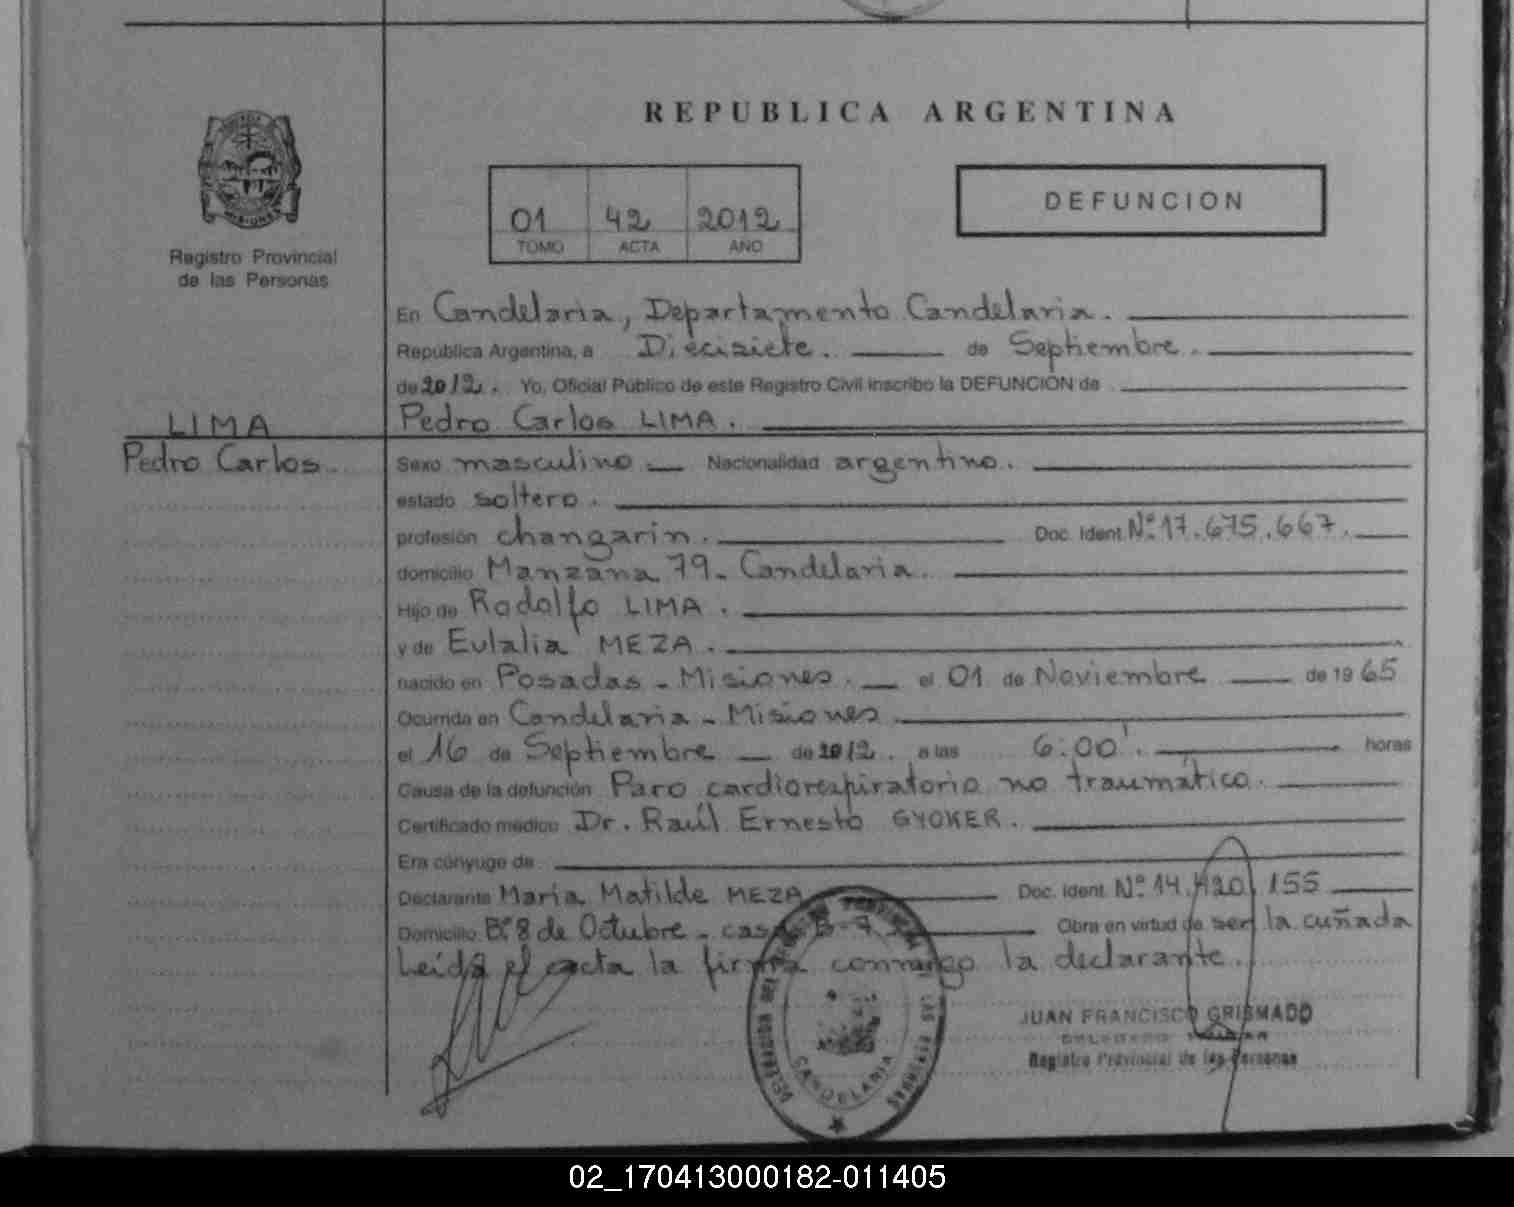 REPUBLICA ARGENTINA
MISIONES
Registro Provincial
de las Personas
01 42 2012
TOMO ACTA AÑO
DEFUNCION
En Candelaria, Departamento Candelaria.
República Argentina, a Diecisiete. de Septiembre.
de 2012. Yo, Oficial Público de este Registro Civil inscribo la DEFUNCION de
Pedro Carlos LIMA.
LIMA
Pedro Carlos
Sexo masculino Nacionalidad argentino.
estado soltero.
profesión changarin. Doc. Ident. Nº 17.675.667.
domicilio Manzana 79- Candelaria.
Hijo de Rodolfo LIMA.
y de Eulalia MEZA.
nacido en Posadas - Misiones. el 01 de Noviembre de 1965
Ocurrida en Candelaria - Misiones
el 16 de Septiembre de 2012. a las 6:00'. horas
Causa de la defunción Paro cardiorespiratorio no traumático.
Certificado médico Dr. Raúl Ernesto GYOKER.
Era cónyuge de
Declarante María Matilde MEZA Doc. Ident. Nº 14.420.155
Domicilio Bº 8 de Octubre - casa B-7. Obra en virtud de ser la cuñada
Leída el acta la firma conmigo la declarante.
CANDELARIA
JUAN FRANCISCO GRISMADO
DELEGADO TITULAR
Registro Provincial de las Personas
02_170413000182-011405